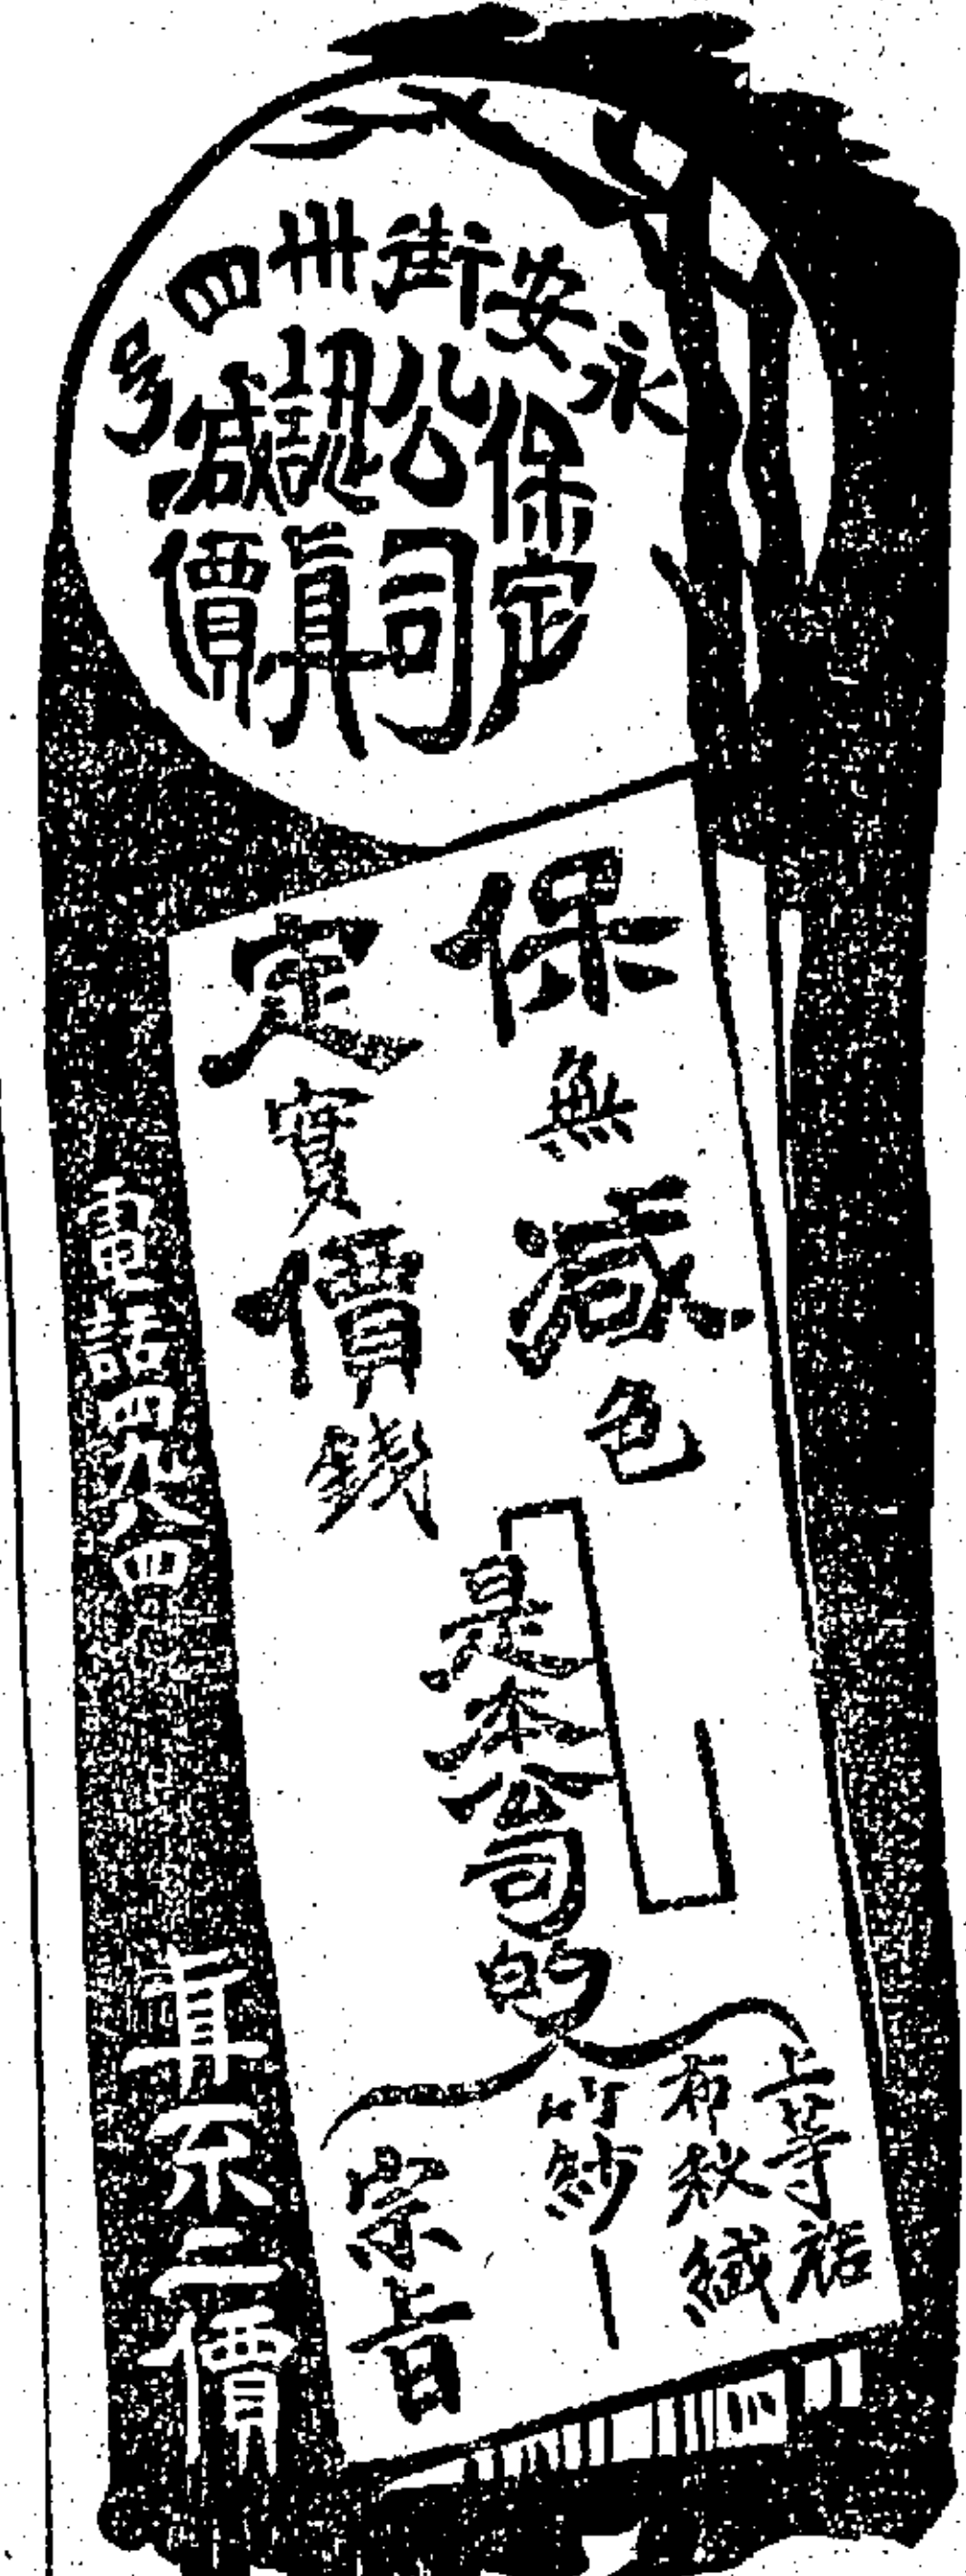 永安街卅四号
保定
公司
認真
減價
保無減色
定實價錢
是本公司的
宗旨
上等
布秋絨
竹紗
電話四九八四
真不二價